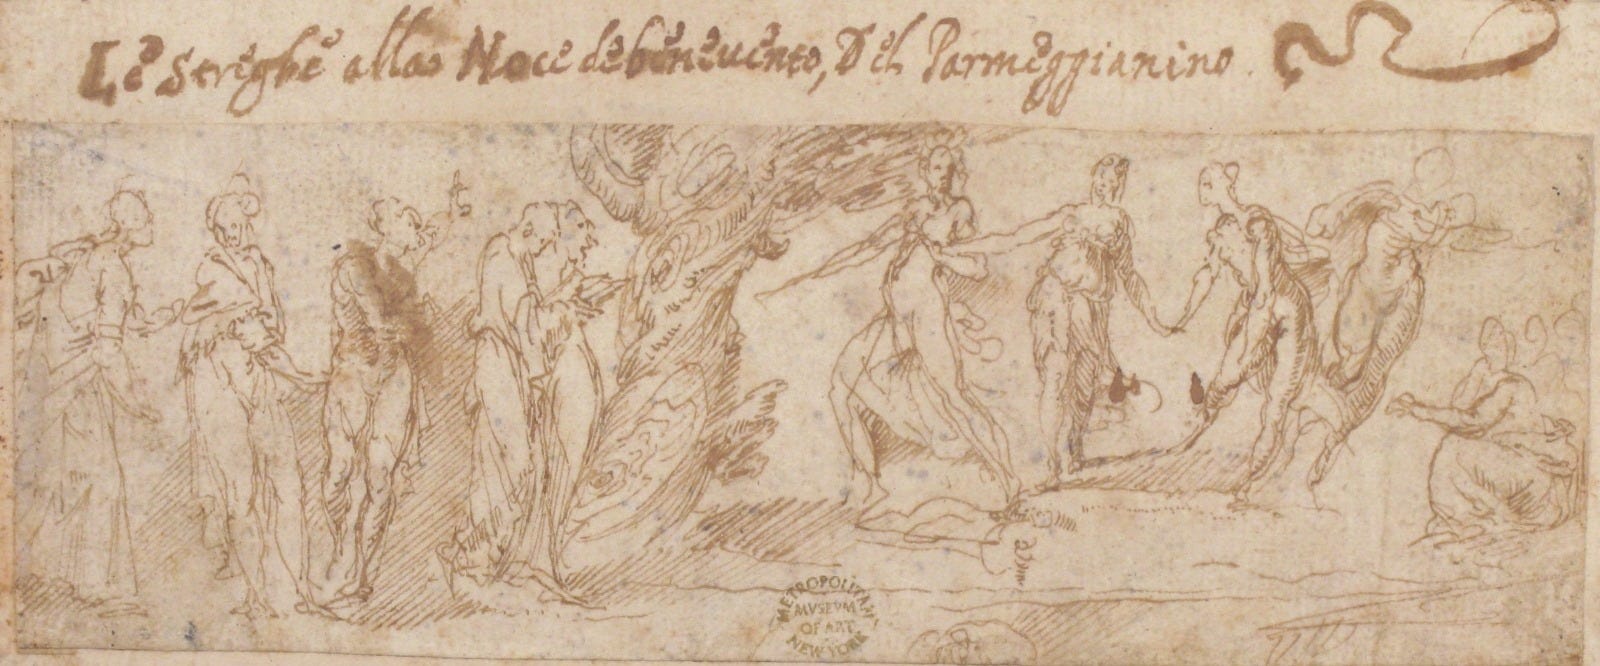 Le Streghe alla Noce debeneuento, Del Parmeggianino.
METROPOLITAN
MVSEVM
OF ART
NEW YORK